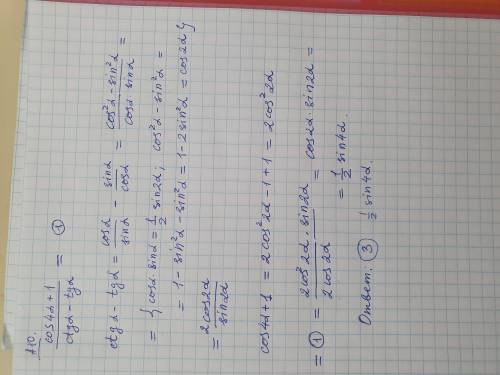 A10.
(cos4α+1)/(ctgα - tgα) = ①
ctgα - tgα = cosα/sinα - sinα/cosα = (cos²α - sin²α)/(cosα·sinα) =
= { cosα·sinα = 1/2 sin2α; cos²α - sin²α =
= 1 - sin²α - sin²α = 1 - 2sin²α = cos2α }
= 2cos2α/sin2α
cos4α+1 = 2cos²2α - 1 + 1 = 2cos²2α
= ① = (2cos²2α · sin2α)/(2cos2α) = cos2α · sin2α =
= 1/2 sin4α
Ответ: ③ 1/2 sin4α.